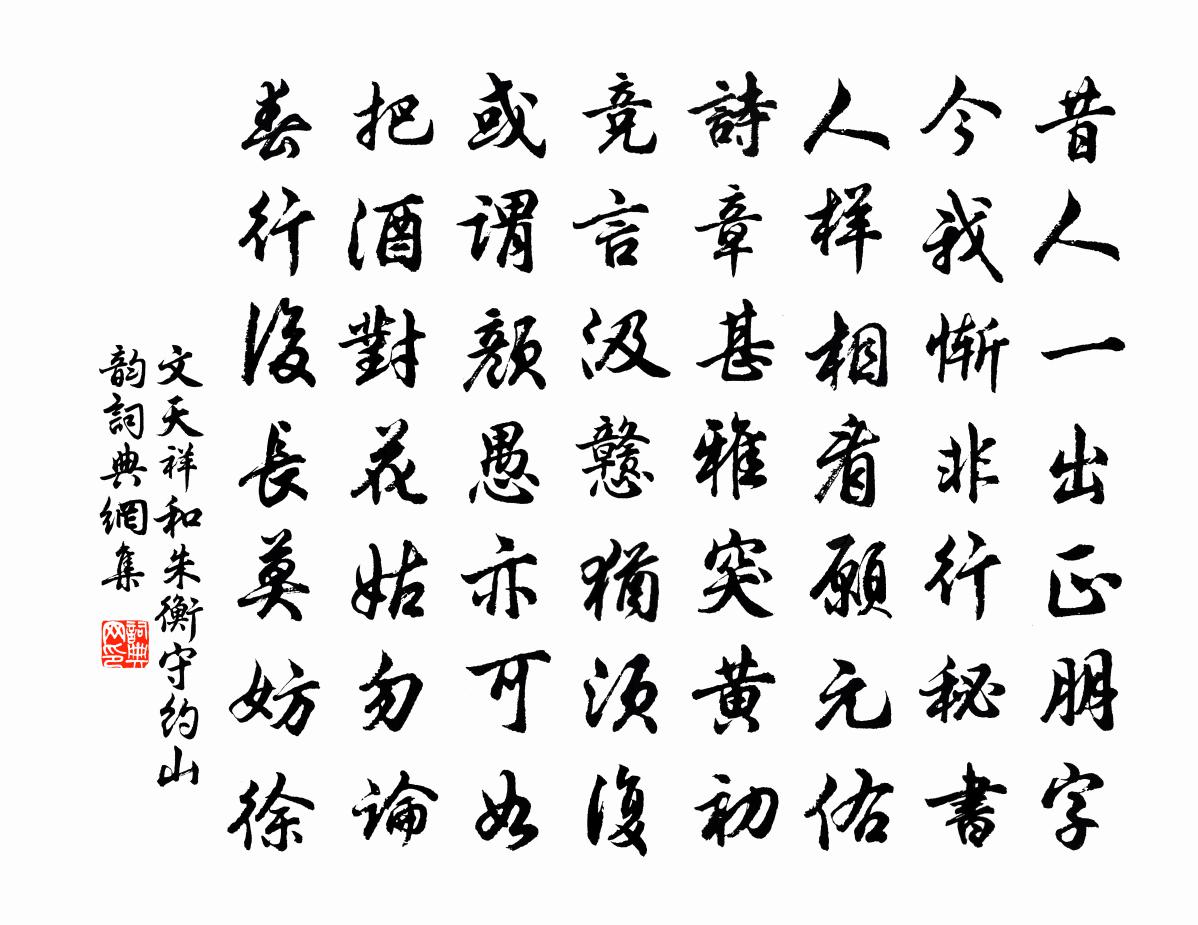 昔人一出正朋字
今我慚非行秘書
人样相看願元佑
詩章甚雅突黄初
竞言汲戇猶須復
或谓顏愚亦可如
把酒對花姑勿論
春行後長莫妨徐
文天祥和朱衡守约山
韵詞典網集
詞典
网印